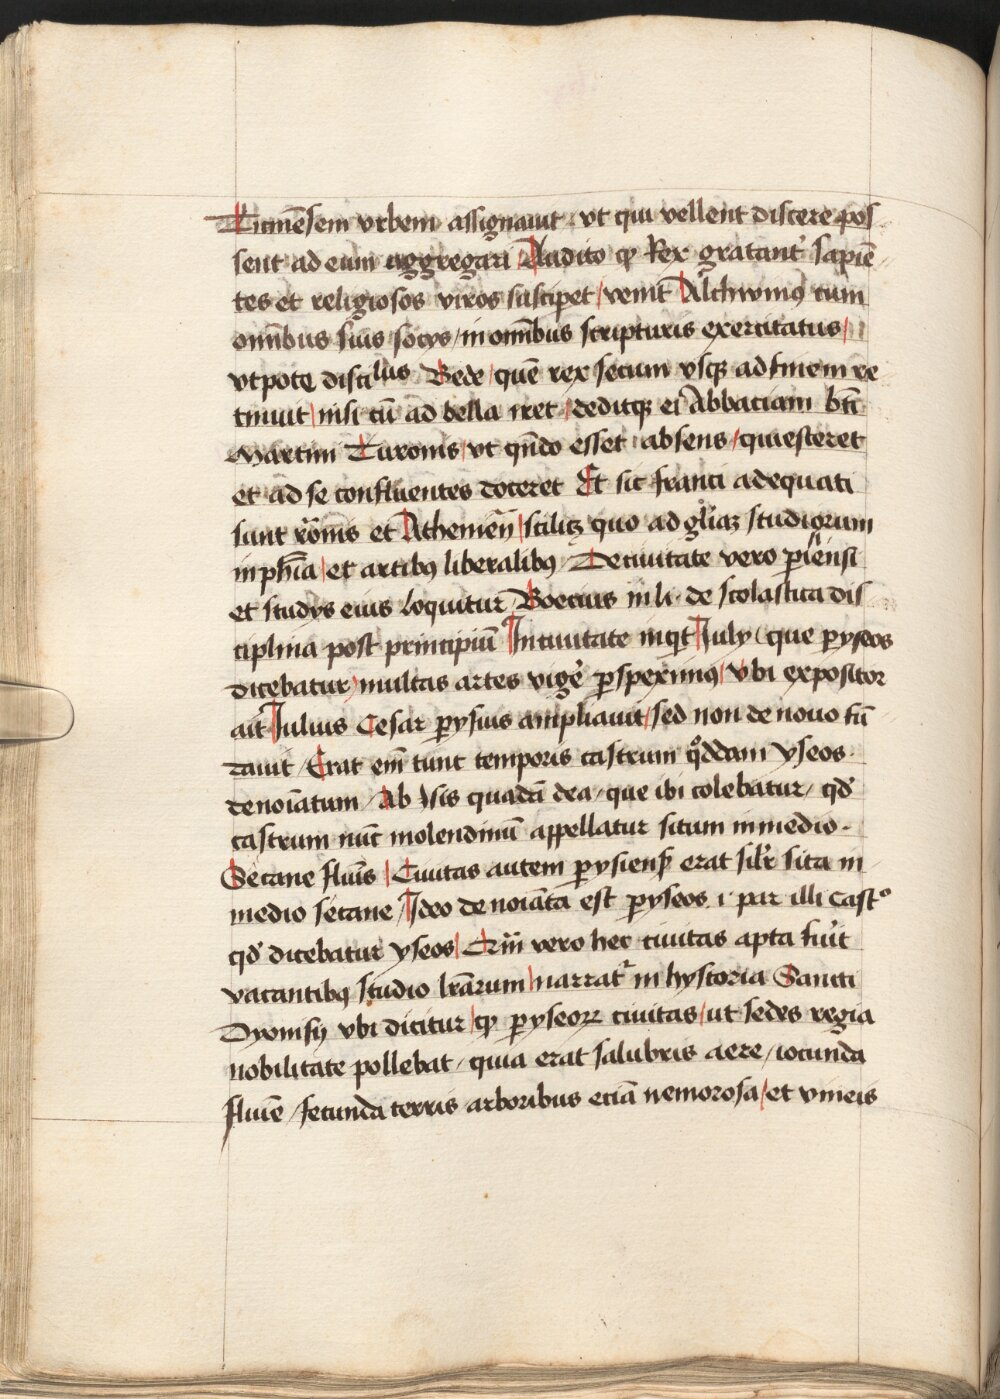 Ticinēsem vrbem assignauit vt qui vellent discere pos
sent ad eum aggregari Audito ꝙ Rex gratant᷑ sapiē
tes et religiosos viros suscipet / venit Alchwinꝰ cum
omībus suis socys / in omībus scripturis exercitatus /
vtpote discilus Bede / quē rex secum vsqꝫ ad finem re
tinuit / nisi cū ad bella iret / deditqꝫ ei Abbaciam bti
Martini Turonis / vt qn̄do esset absens / quiesceret
et ad se confluentes doceret Et sic franci adequati
sunt rōnis et Athenien̄ / scilicꝫ quo ad gliaꝫ studiorum
in phīa / et artibꝰ liberalibꝰ / De ciuitate vero pisiensi
et studys eius loquitur Boecius in li · de scolastica dis
ciplina post principiū In ciuitate inqt July / que pyseos
dicebatur / multas artes vige᷑ perspeximꝰ / vbi expositor
ait Julius Cesar pysius ampliauit / sed non de nouo fū
dauit / Erat em̄ tunc temporis castrum qͦddam yseos ·
denoīatum / Ab Isis quadā dea / que ibi colebatur / qd᷑
castrum nūc molendinū appellatur situm in medio ·
Secane fluīs / Ciuitas autem pysiens̄ erat silr᷑ sita in
medio secane / Ideo denoīata est pyseos · i · par illi castͦ
qd᷑ dicebatur yseos / Qm̄ vero hec ciuitas apta fuīt
vacantibꝰ studio lrārum / narrat᷑ in hystoria Sancti
Dyonisy vbi dicitur / ꝙ pyseoꝝ ciuitas / ut sedes regia
nobilitate pollebat / quia erat salubris aere / iocunda
fluīe / fecunda terris arboribus eciā nemorosa / et vineis